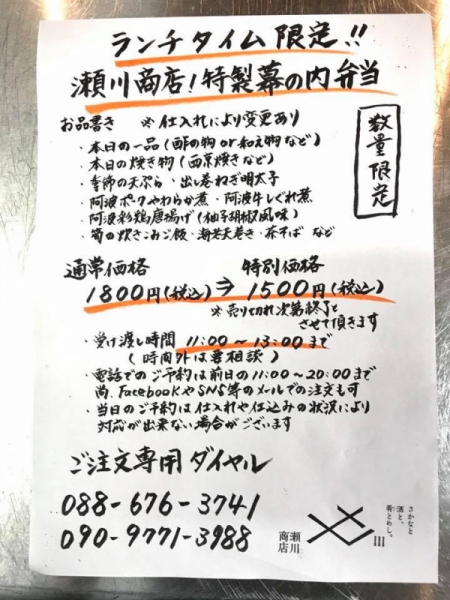 ランチタイム限定!!
瀬川商店!特製幕の内弁当
お品書き ※仕入れにより変更あり
数量限定
・本日の一品(酢の物or和え物など)
・本日の焼き物(西京焼きなど)
・季節の天ぷら・出し巻ねぎ明太子
・阿波ポークやわらか煮・阿波牛しぐれ煮
・阿波彩鶏唐揚げ(柚子胡椒風味)
・筍の炊きこみご飯・海老天巻き・茶そば など
通常価格 特別価格
1800円(税込)⇒1500円(税込)
※売り切れ次第終了と
させて頂きます
・受け渡し時間 11:00~13:00まで
(時間外は要相談)
・電話でのご予約は前日の11:00~20:00まで
尚、FacebookやSNS等のメールでの注文も可
・当日のご予約は仕入れや仕込みの状況により
対応が出来ない場合がございます
ご注文専用ダイヤル
088-676-3741
090-9771-3988
さかなと
酒と、
肴とめし。
瀬川
商店